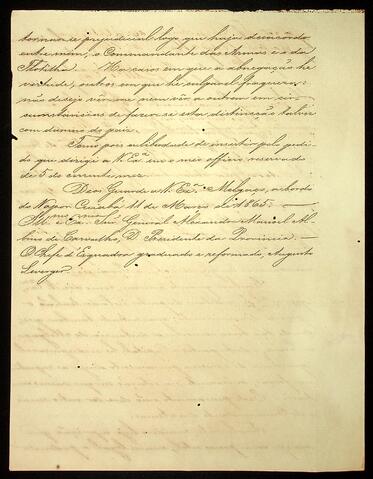 tornar-se prejudicial logo que haja desaccordo
entre mim, o Commandante das Armas e o da
Flotilha. Ha casos em que a abnegação he
virtude, outros em que he culpavel fraqueza:
não desejo ver-me nem vêr a outrem em cir-
cumstancias de fazer se esta distincção talvez
com damno do paiz.
Tomo pois a liberdade de insistir pelo pedi-
do que dirigi a V. Exª em o meo officio reservado
de 5 do corrente mez.
Deos Guarde a V. Exª. Melgaço, a bordo
do Vapor Cuiabá 11 de Março de 1865.
Illmo e Exmo Snr. General Alexandre Manoel Al-
bino de Carvalho, D. Presidente da Provincia. —
O Chefe d'Esquadra graduado e reformado, Augusto
Leverger